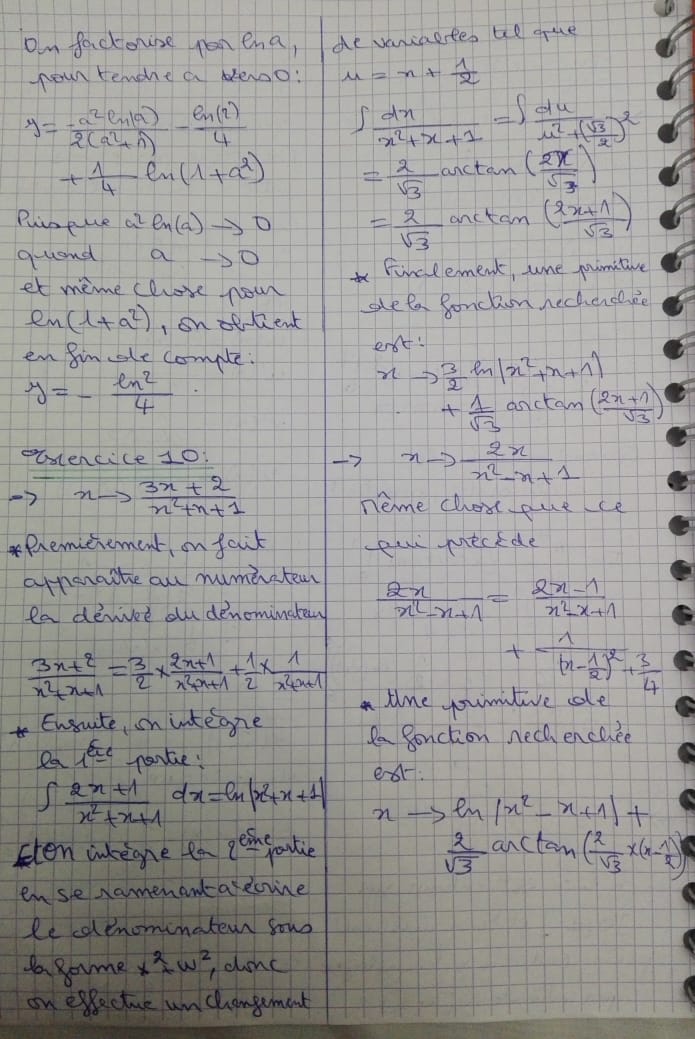 On factorise par ln a,
pour tendre a vers 0 :
y = -a² ln(a) / 2(a²+1) - ln(2)/4
+ 1/4 ln(1+a²)
Puisque a² ln(a) → 0
quand a → 0
et même chose pour
ln(1+a²), on obtient
en fin de compte :
y = - ln2/4 .
Exercice 10 :
→ x → (3x+2)/(x²+x+1)
* Premièrement, on fait
apparaître au numérateur
la dérivée du dénominateur
(3x+2)/(x²+x+1) = 3/2 × (2x+1)/(x²+x+1) + 1/2 × 1/(x²+x+1)
* Ensuite, on intègre
la 1ère partie :
∫ (2x+1)/(x²+x+1) dx = ln|x²+x+1|
Et on intègre la 2ème partie
en se ramenant à écrire
le dénominateur sous
la forme x²+w², donc
on effectue un changement
de variables tel que
u = x + 1/2
∫ dx/(x²+x+1) = ∫ du/(u²+(√3/2)²)
= 2/√3 arctan(2x/√3)
= 2/√3 arctan((2x+1)/√3)
* Finalement, une primitive
de la fonction recherchée
est :
x → 3/2 ln|x²+x+1)
+ 1/√3 arctan((2x+1)/√3)
→ x → 2x/(x²-x+1)
même chose que ce
qui précède
2x/(x²-x+1) = (2x-1)/(x²-x+1)
+ 1/((x-1/2)²+3/4)
* Une primitive de
la fonction recherchée
est :
x → ln|x²-x+1) +
2/√3 arctan(2/√3 ×(x-1/2)